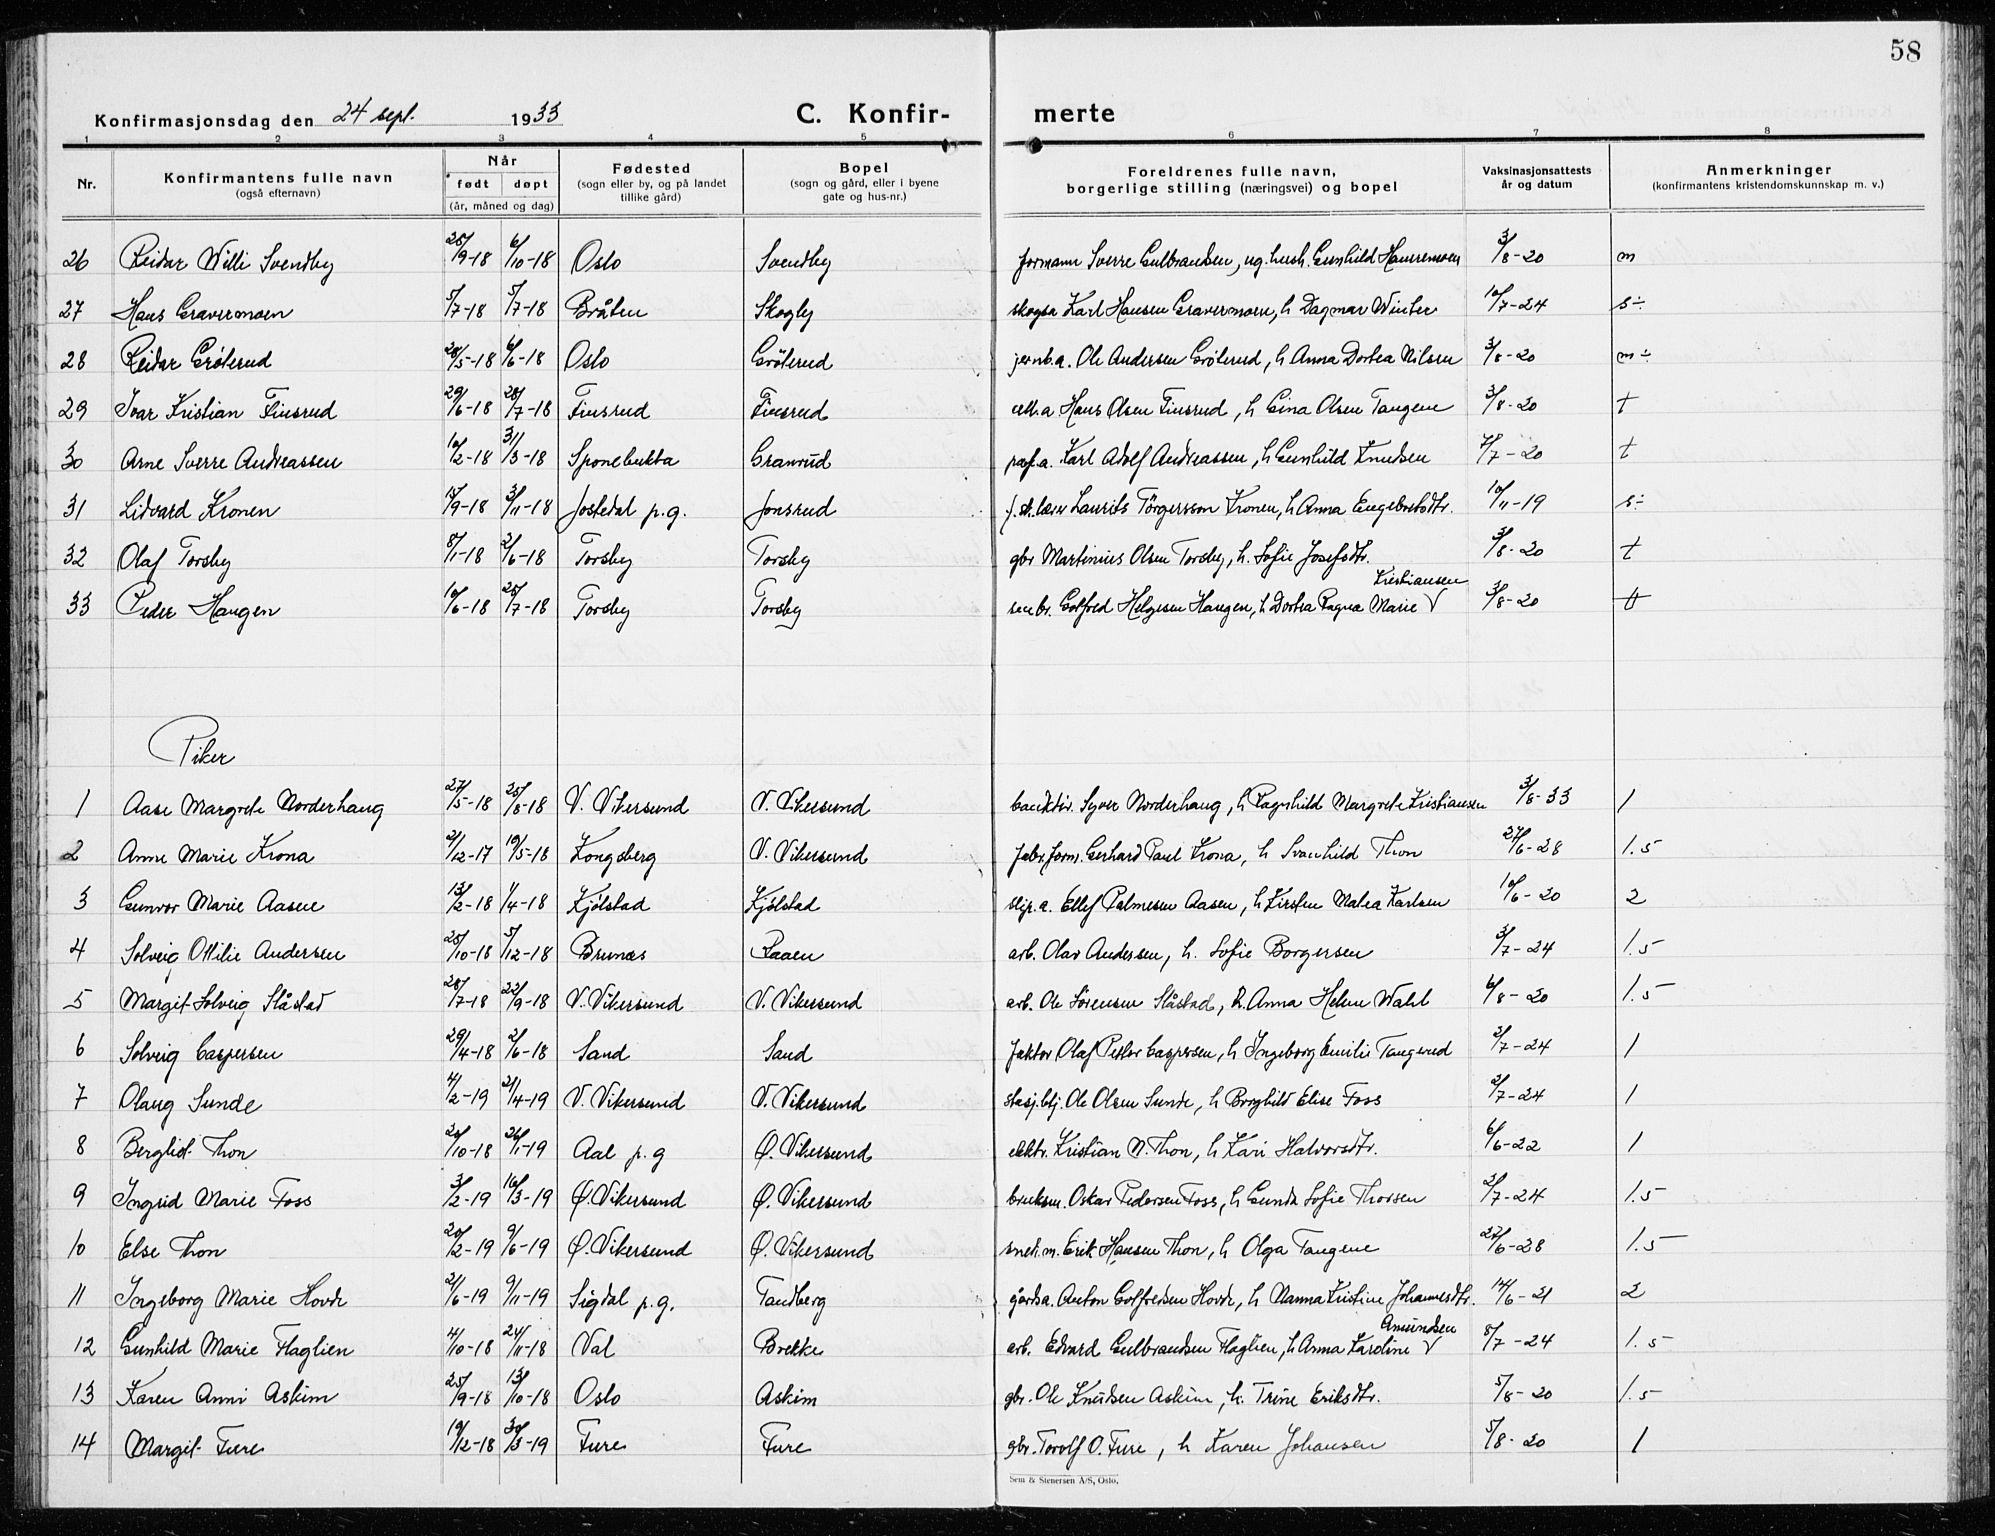 58
Konfirmasjonsdag den 24 sept. 1933 C. Konfir- merte
1 2 3 4 5 6 7 8
Nr. Konfirmantens fulle navn (også efternavn) Når født døpt (år, måned og dag) Fødested (sogn eller by, og på landet tillike gård) Bopel (sogn og gård, eller i byene gate og hus-nr.) Foreldrenes fulle navn, borgerlige stilling (næringsvei) og bopel Vaksinasjonsattests år og datum Anmerkninger (konfirmantens kristendomskunnskap m. v.)
26 Reidar Willi Svendby 25/9-18 6/10-18 Oslo Svendby formann Sverre Gulbrandsen, ug. hush. Gunhild 3/8-20 m
27 Hans Gravermoen 5/7-18 5/7-18 Bråten Skogly skogsa Karl Hansen Gravermoen, h Dagmar Winter 10/7-24 s÷
28 Reidar Grøterud 28/5-18 6/6-18 Oslo Grøterud jernb.a. Ole Andersen Grøterud, h Anna Dortea Nilsen 3/8-20 m÷
29 Ivar Kristian Finsrud 29/6-18 28/7-18 Finsrud Finsrud cell.a Hans Olsen Finsrud, h Gina Olsen Tangene 3/8-20 t
30 Arne Sverre Andreassen 10/2-18 31/3-18 Sponebukta Granrud Karl Adolf Andreassen, h Gunhild Knudsen 7/7-20 t
31 Lidvard Kronen 15/9-18 3/11-18 Jostedal p.g. Jonsrud Laurits Törgersson Kronen, h Anna Engebretsdtr. 10/11-19 s÷
32 Olaf Torsby 8/1-18 2/6-18 Torsby Torsby gbr Martinius Olsen Torsby, h. Sofie Josefsdtr. 3/8-20 t
33 Peder Haugen 10/6-18 28/7-18 Torsby Torsby Golfred Helgesen Haugen, h Dortea Ragna Marie V Kristiansen 3/8-20 t
Piker
1 Aase Margrete Norderhaug 27/5-18 25/8-18 V. Vikersund V. Vikersund Syver Norderhaug, h Ragnhild Margrete Kristiansen 3/8-33 1
2 Anne Marie Krona 21/12-17 19/5-18 Kongsberg V. Vikersund fabr.form. Gerhard Paul Krona, h Svanhild Thon 27/6-28 1.5
3 Gunvor Marie Aasen 13/2-18 1/4-18 Kjølstad Kjølstad slip.a. Ellef Palmesen Aasen, h Kirsten Malea Karlsen 10/6-20 2
4 Solveig Ottilie Andersen 25/10-18 5/12-18 Brunes Raaen arb. Olav Andersen, h. Sofie Borgersen 3/7-24 1.5
5 Margit Solveig Slåstad 28/7-18 22/9-18 V. Vikersund V. Vikersund arb. Ole Sörensen Slåstad, h. Anna Helene Wahl 6/8-20 1.5
6 Solveig Caspersen 29/4-18 2/6-18 Sand Sand faktor Olaf Petter Caspersen, h Ingeborg Emilie Tangerud 2/7-24 1
7 Olaug Sunde 4/2-19 21/4-19 V. Vikersund V. Vikersund stasj.btj. Ole Olsen Sunde, h Borghild Elise Foss 2/7-24 1
8 Bergliot Thon 20/10-18 26/1-19 Aal p.g Ø. Vikersund elektr. Kristian N. Thon, h Kari Halvorsdtr. 6/6-22 1
9 Ingrid Marie Foss 3/2-19 16/3-19 Ø. Vikersund Ø. Vikersund bruksm. Oskar Pedersen Foss, h Gunda Sofie Thorsen 2/7-24 1.5
10 Else Thon 20/2-19 9/6-19 Ø. Vikersund Ø. Vikersund snek.m. Erik Hansen Thon, h Olga Tangene 27/6-28 1.5
11 Ingeborg Marie Hovde 21/6-19 9/11-19 Sigdal p.g. Tandberg gårdsa. Anton Golfredsen Hovde, h Nanna Kristine Johannesdtr. 14/6-21 2
12 Gunhild Marie Flaglien 4/10-18 24/11-18 Val Brekke arb. Edvard Gulbrandsen Flaglien, h Anna Karoline V Amundsen 8/7-24 1.5
13 Karen Anni Askim 25/9-18 13/10-18 Oslo Askim gbr. Ole Knudsen Askim, h. Trine Eriksdtr. 5/8-20 1.5
14 Margit Fure 19/12-18 30/3-19 Fure Fure gbr. Torolf O. Fure, h Karen Johansen 5/8-20 1
Sem & Stenersen A/S, Oslo.